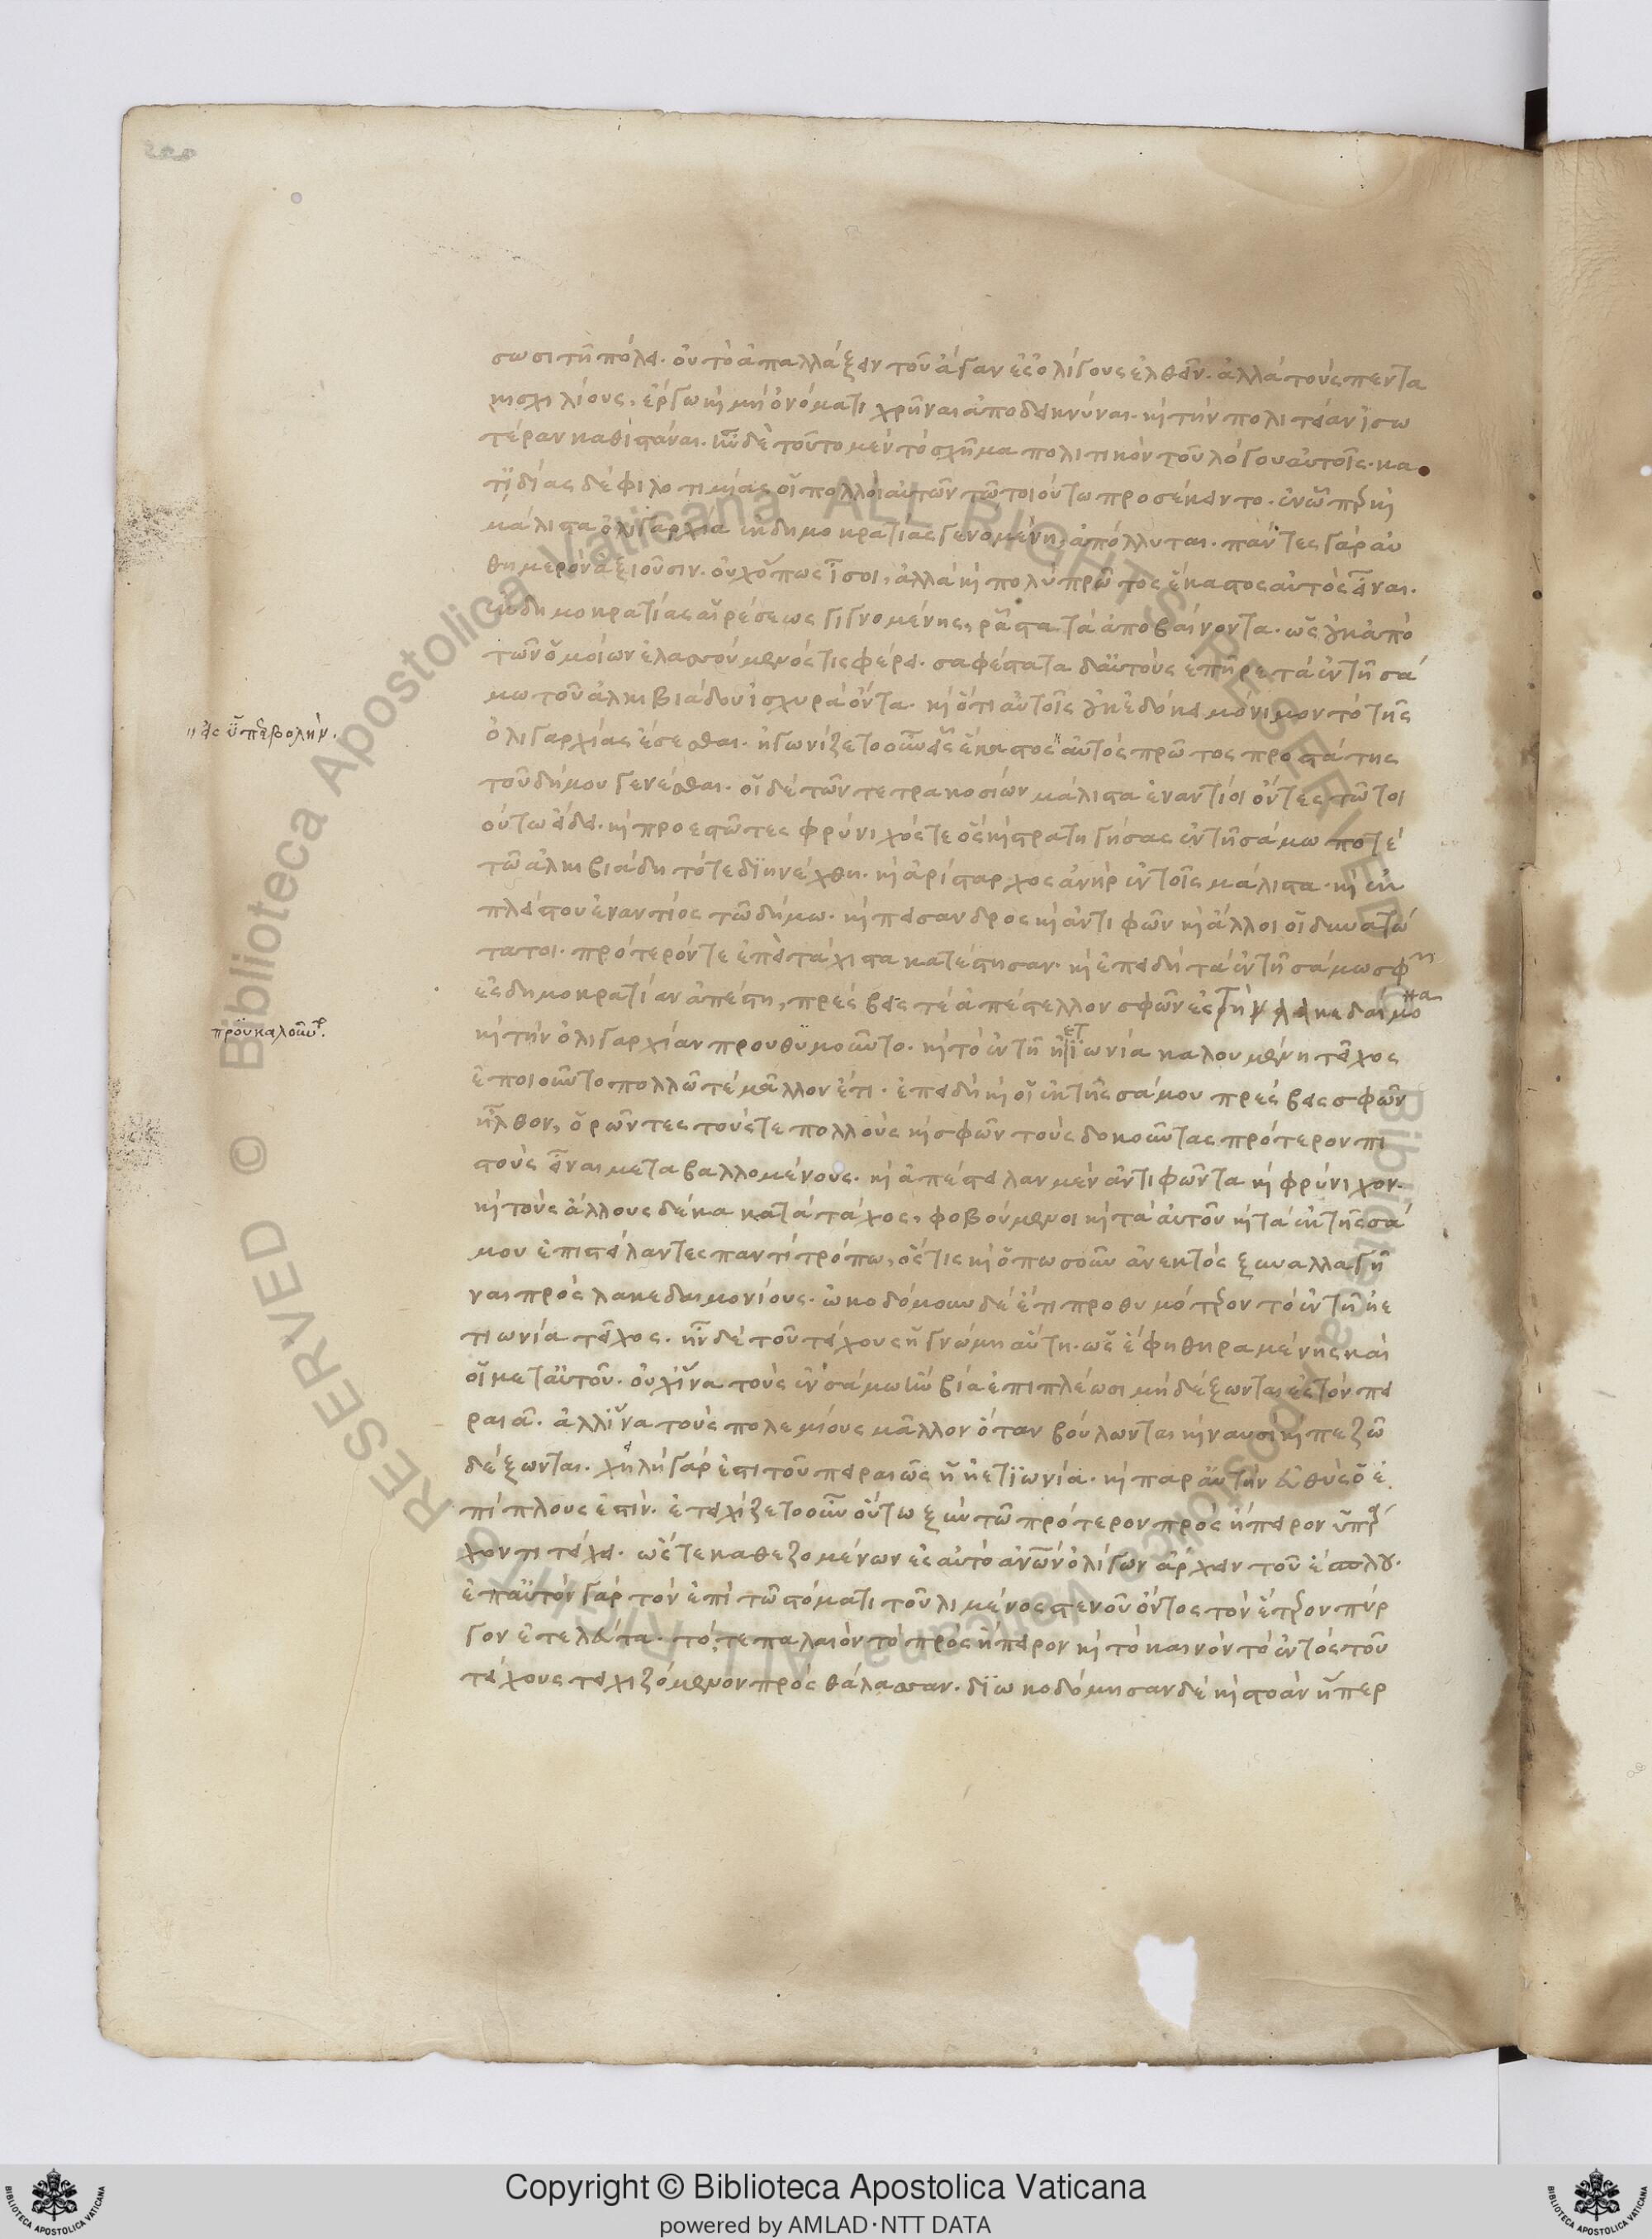 σωσι τὴν πόλει. οὐ τὸ ἀπαλλάξειν τοῦ ἄγαν ἐς ὀλίγους ἐλθεῖν. ἀλλὰ τοὺς πεντα
κισχιλίους. ἔργω κ μὴ ὀνόματι χρῆναι ἀποδεικνύναι. κ τὴν πολιτείαν ἰσω
τέραν καθιστάναι. ἦν δὲ τοῦτο μὲν τὸ σχῆμα πολιτικὸν τοῦ λόγου αὐτοῖς. κα
τ ἰδίας δὲ φιλοτιμίας οἱ πολλοὶ αὐτῶν τῶ τοιούτω προσέκειντο. ἐν ὧπερ κ
μάλιστα ὀλιγαρχία ἐκ δημοκρατίας γενομένη ἀπόλλυται. πάντες γὰρ αὐ
θημερὸν ἀξιοῦσιν. οὐχ ὅπως ἴσοι, ἀλλὰ κ πολὺ πρῶτος ἕκαστος αὐτὸς εἶναι.
ἐκ δημοκρατίας αἱρέσεως γιγνομένης, ρᾶστα τὰ ἀποβαίνοντα. ὡς οὐκ ἀπὸ
τῶν ὁμοίων ἐλασσούμενός τις φέρει. σαφέστατα δ αὐτοὺς ἐπῆρε τὰ ἐν τῆ σά
μω τοῦ ἀλκιβιάδου ἰσχυρὰ ὄντα. κ ὅτι αὐτοῖς οὐκ ἐδόκει μόνιμον τὸ τῆς
ὀλιγαρχίας ἔσεσθαι. ἠγωνίζετο οὖν εἷς ἕκαστος αὐτὸς πρῶτος προστάτης
τοῦ δήμου γενέσθαι. οἱ δὲ τῶν τετρακοσίων μάλιστα ἐναντίοι ὄντες τῶ τοι
ούτω εἴδει. κ προεστῶτες φρύνιχός τε ὃς κ στρατηγήσας ἐν τῆ σάμω ποτὲ
τῶ ἀλκιβιάδη τότε διηνέχθη. κ ἀρίσταρχος ἀνὴρ ἐν τοῖς μάλιστα. κ ἐκ
πλείστου ἐναντίος τῶ δήμω. κ πείσανδρος κ ἀντιφῶν κ ἄλλοι οἱ δυνατώ
τατοι. πρότερόν τε ἐπεὶ τάχιστα κατέστησαν. κ ἐπειδὴ τὰ ἐν τῆ σάμω σφῶν
ἐς δημοκρατίαν ἀπέστη, πρέσβεις τε ἀπέστελλον σφῶν ἐς τὴν λακεδαίμονα
κ τὴν ὀλιγαρχίαν προυθυμοῦντο. κ τὸ ἐν τῆ ἠετϊωνία καλουμένη τεῖχος
ἐποιοῦντο πολλῶ τε μᾶλλον ἔτι. ἐπειδὴ κ οἱ ἐκ τῆς σάμου πρέσβεις σφῶν
ἦλθον, ὁρῶντες τούς τε πολλοὺς κ σφῶν τοὺς δοκοῦντας πρότερον πι
στοὺς εἶναι μεταβαλλομένους. κ ἀπέστειλαν μὲν ἀντιφῶντα κ φρύνιχον.
κ τοὺς ἄλλους δέκα κατὰ τάχος, φοβούμενοι κ τὰ αὐτοῦ κ τὰ ἐκ τῆς σά
μου ἐπιστείλαντες παντὶ τρόπω, ὅστις κ ὁπωσοῦν ἀνεκτὸς ξυναλλαγῆ
ναι πρὸς λακεδαιμονίους. ὠκοδόμουν δὲ ἔτι προθυμότερον τὸ ἐν τῆ ἠε
τιωνία τεῖχος. ἦν δὲ τοῦ τείχους ἡ γνώμη αὕτη. ὡς ἔφη θηραμένης καὶ
οἱ μετ αὐτοῦ. οὐχ ἵνα τοὺς ἐν σάμω ἢν βία ἐπιπλέωσι μὴ δέξωνται ἐς τὸν πει
ραιᾶ. ἀλλ ἵνα τοὺς πολεμίους μᾶλλον ὅταν βούλωνται κ ναυσὶ κ πεζῶ
δέξωνται. χηλὴ γάρ ἐστι τοῦ πειραιῶς ἡ ἠετϊωνία. κ παρ αὐτὴν εὐθὺς ὁ ἔ
πίπλους ἐστίν. ἐτειχίζετο οὖν οὕτω ξὺν τῶ πρότερον πρὸς ἤπειρον ὑπάρ
χοντι τείχει. ὥστε καθεζομένων ἐς αὐτὸ ἀνων ὀλίγων ἄρχειν τοῦ ἔσπλου.
ἐπ αὐτὸν γὰρ τὸν ἐπὶ τῶ στόματι τοῦ λιμένος στενοῦ ὄντος τὸν ἕτερον πύρ
γον ἐτελεύτα. τό, τε παλαιὸν τὸ πρὸς ἤπειρον κ τὸ καινὸν τὸ ἐντὸς τοῦ
τείχους τειχιζόμενον πρὸς θάλασσαν. διωκοδόμησαν δὲ κ στοὰν ἥπερ
ἐς ὑπερβολήν.
προϋκαλοῦντο.
Copyright © Biblioteca Apostolica Vaticana
powered by AMLAD·NTT DATA